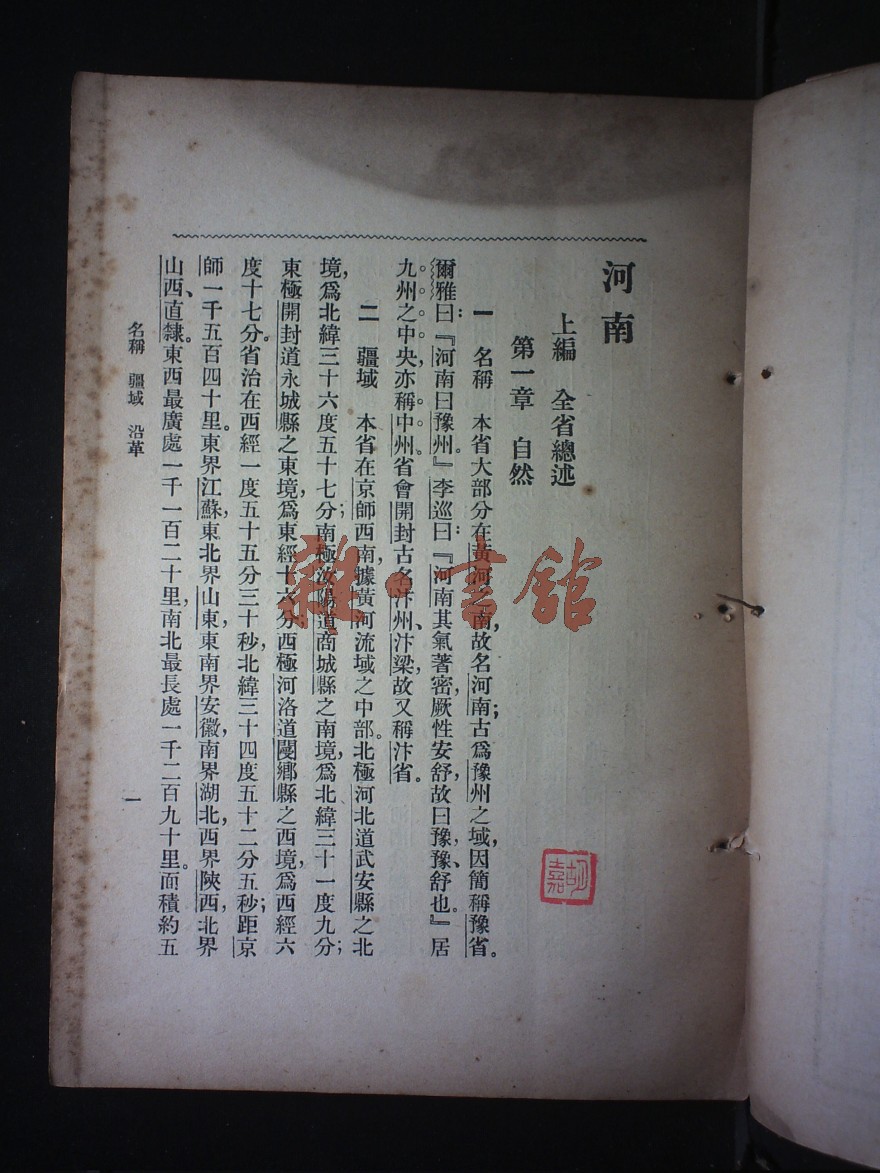 河南
上編　全省總述
第一章　自然
一　名稱　本省大部分在黃河之南，故名河南；古爲豫州之域，因簡稱豫省。
爾雅曰：『河南曰豫州。』李巡曰：『河南其氣著密，厥性安舒，故曰豫，豫、舒也。』居
九州之中央，亦稱中州。省會開封古名汴州、汴梁，故又稱汴省。
二　疆域　本省在京師西南，據黃河流域之中部。北極河北道武安縣之北
境，爲北緯三十六度五十七分；南極汝陽道商城縣之南境，爲北緯三十一度九分；
東極開封道永城縣之東境，爲東經十六分；西極河洛道閿鄉縣之西境，爲西經六
度十七分。省治在西經一度五十五分三十秒，北緯三十四度五十二分五秒；距京
師一千五百四十里。東界江蘇，東北界山東，東南界安徽，南界湖北，西界陝西，北界
山西、直隸。東西最廣處一千一百二十里，南北最長處一千二百九十里。面積約五
名稱　疆域　沿革
一
雜·書館